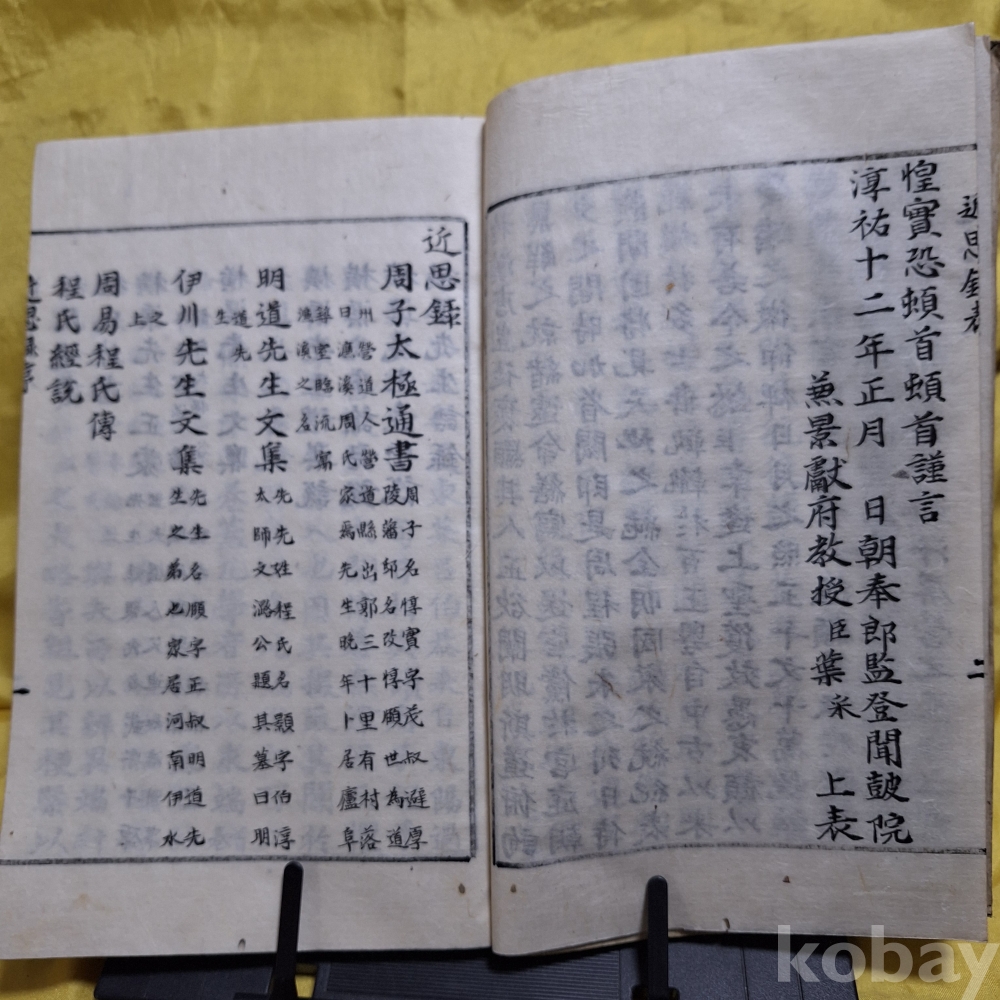 近思錄表
二
惶實恐頓首頓首謹言
淳祐十二年正月 日朝奉郎監登聞皷院
蒹景獻府教授臣葉采 上表
近思錄
周子太極通書 周子名惇實字茂叔避厚
陵藩邸名改惇頤世為道
州營道人營道縣出郭三十里有村落
曰濂溪周氏家焉先生晚年卜居廬阜
築室臨流寓
濂溪之名
明道先生文集 先先姓程氏名顥字伯淳
太師文潞公題其墓曰明
道先
生
伊川先生文集 先生名頤字正叔明道先
生之弟也家居河南伊水
之
上
周易程氏傳
程氏經說
近思錄序
一
kobay